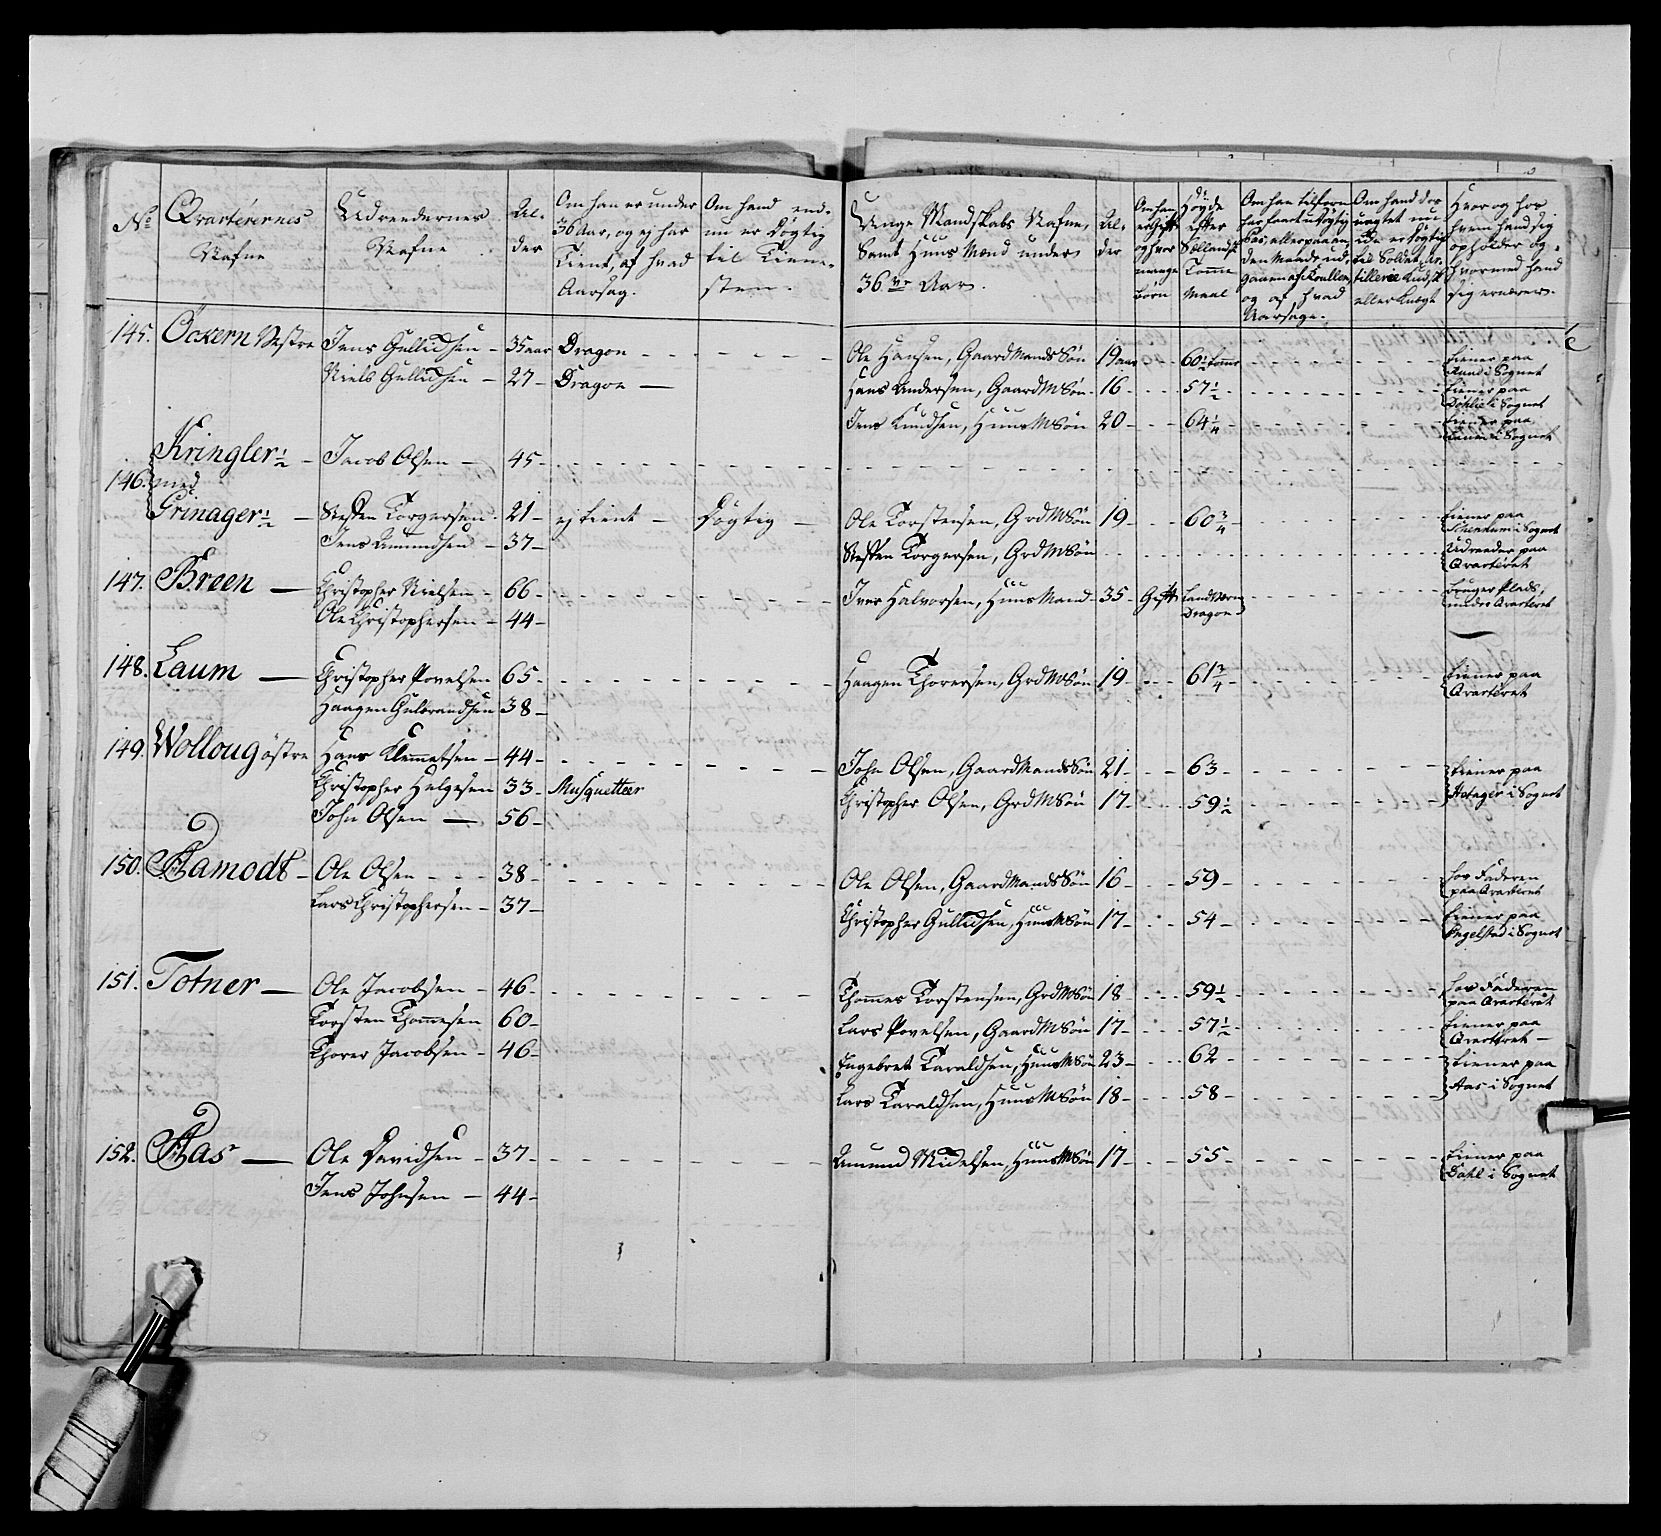 No
Qvarterernes
Nafne
Udreedernes
Nafne
Al-
der
Om han er under
36 Aar, og ej har
Tient, af hvad
Aarsag.
Om hand end-
nu er Døgtig
til Tiene-
sten.
Unge Mandskabs Nafne,
Samt Huus Mænd under
36ve Aar.
Al-
der
Om han
er Gift
og hvor
mange
børn
Høyde
efter
Sællandsk
Tomme
Maal
Om han tilforn
og af hvad
Aarsage.
Om hand der
uagtet nu
til Soldat, Ar-
tillerie Kudsk
eller Knægt
Hvor og hos
hvem hand sig
opholder og
hvormed hand
sig ernærer.
145. Öckern Vestre Jens Gullidsen - 35 aar Dragon - - - Ole Hansen, Gaard Mands Søn 19 aar 60½ tomme tiener paa
i Sognet
Niels Gullidsen - 27 - Dragon - Hans Andersen, Gaard M Søn 16 - - - 57½ tiener paa
Døhlie i Sognet
Jens Knudsen, Huus M Søn 20 - - - 64¼ tiener paa
i Sognet
146. Kringler ½ - Jacob Olsen - 45 -
med
Grinager ½ - Steffen Torgersen - 21 - ej tient - Døgtig - Ole Torstensen, Grd M Søn 19 - - - 60¾ tiener paa
i Sognet
Jens Amundsen - 37 - Steffen Torgersen, Grd M Søn - - - Udreeder paa
Qvarteret
147. Breen - Christopher Nielsen - 66 - Iver Halvorsen, Huus Mand - 35 - Gift Landværn
Dragon bruger Plads,
under Qvarteret
Ole Christophersen - 44 -
148. Laum - Christopher Povelsen 65 - Haagen Thorersen, Grd M Søn 19 - - - 61¾ tiener paa
Qvarteret
Haagen Gulbrandsen 38 -
149. Wolloug østre Hans Klemmetsen - 44 - John Olsen, Gaard Mands Søn 21 - - - 63 - tiener paa
i Sognet
Christopher Helgesen 33 - Musquetteer Christopher Olsen, Grd M Søn 17 - - - 59½
John Olsen - 56 -
150. Aamodt - Ole Olsen - - - 38 - Ole Olsen, Gaard Mands Søn 16 - - - 59 - hos Faderen
paa Qvarteret
Lars Christophersen - 37 - Christopher Gullidsen, Huus M Søn 17 - - - 54 - tiener paa
Engelstad i Sognet
151. Totner - Ole Jacobsen - 46 - Thommes Torstensen, Grd M Søn 18 - - - 59½ hos Faderen
paa Qvarteret
Torsten Thommesen 60 - Lars Povelsen, Gaard M Søn 17 - - - 57½ tiener paa
Qvarteret -
Thorer Jacobsen - 46 - Engebret Taraldsen, Huus M Søn 23 - - - 62 tiener paa
Aas i Sognet
Lars Taraldsen, Huus M Søn 18 - - - 58 -
152. Aas - Ole Davidsen - 37 - Amund Midelsen, Huus M Søn 17 - - - 55 tiener paa
Dahl i Sognet
Jens Johnsen - 44 -